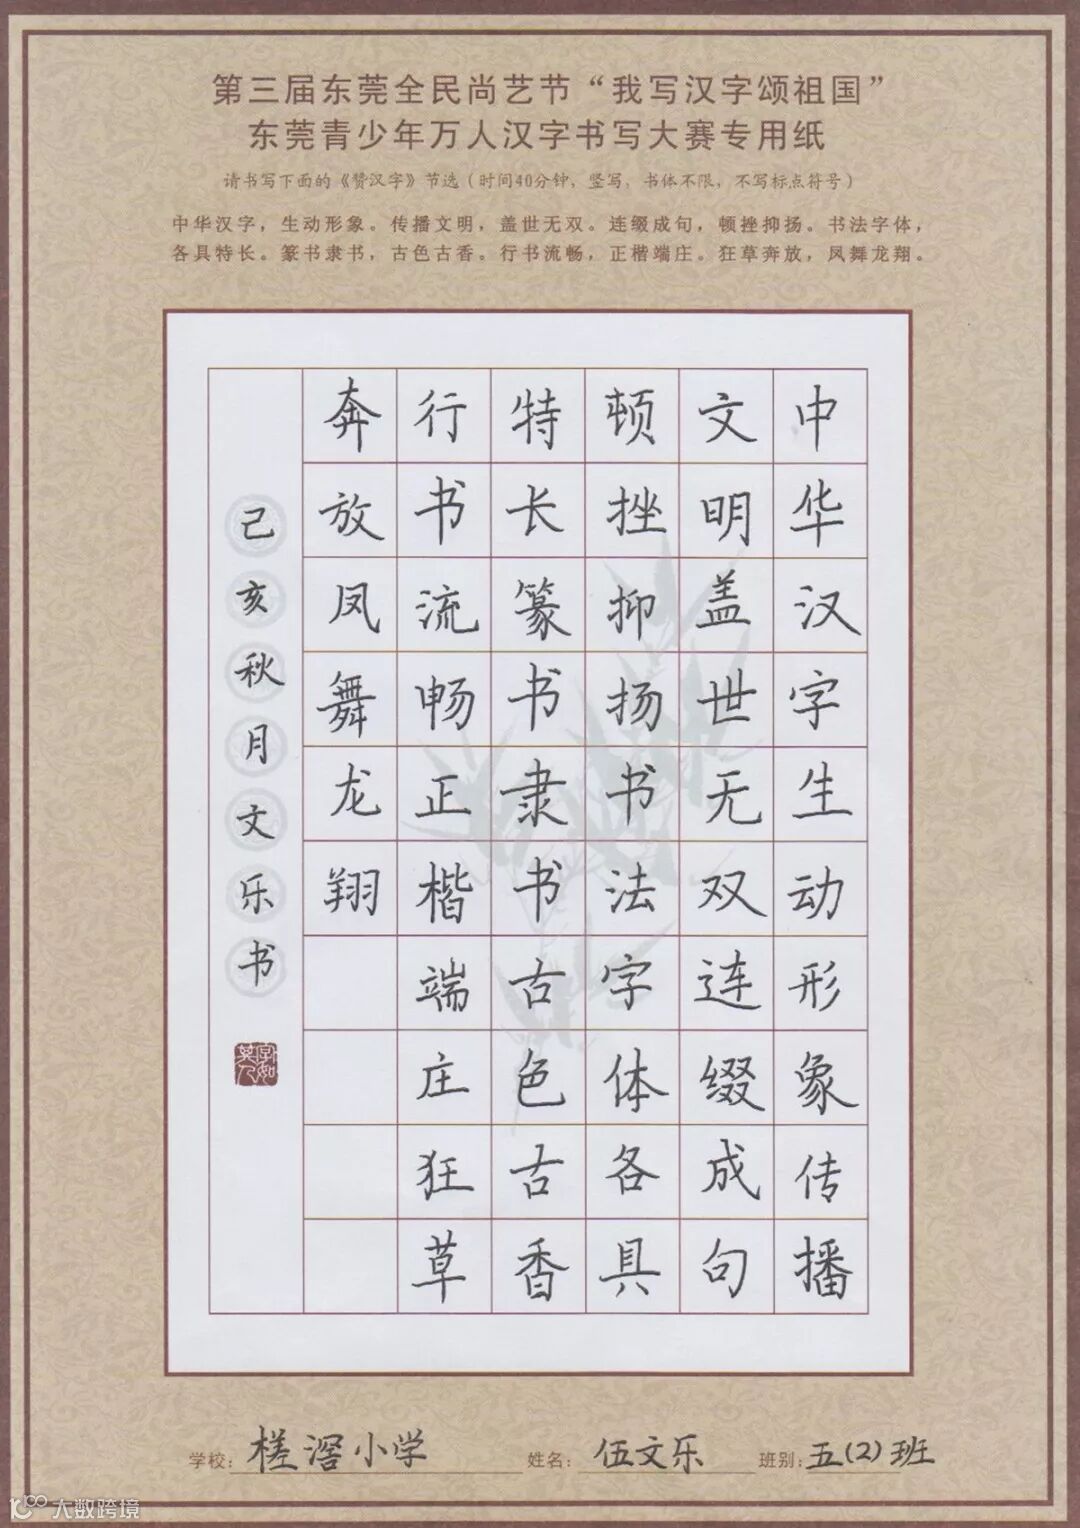 第三届东莞全民尚艺节“我写汉字颂祖国”
东莞青少年万人汉字书写大赛专用纸
请书写下面的《赞汉字》节选(时间40分钟，竖写，书体不限，不写标点符号)
中华汉字，生动形象。传播文明，盖世无双。连缀成句，顿挫抑扬。书法字体，
各具特长。篆书隶书，古色古香。行书流畅，正楷端庄。狂草奔放，凤舞龙翔。
中华汉字生动形象传播
文明盖世无双连缀成句
顿挫抑扬书法字体各具
特长篆书隶书古色古香
行书流畅正楷端庄狂草
奔放凤舞龙翔
己亥秋月文乐书
字如其人
学校：槎滘小学 姓名：伍文乐 班别：五(2)班
大数跨境